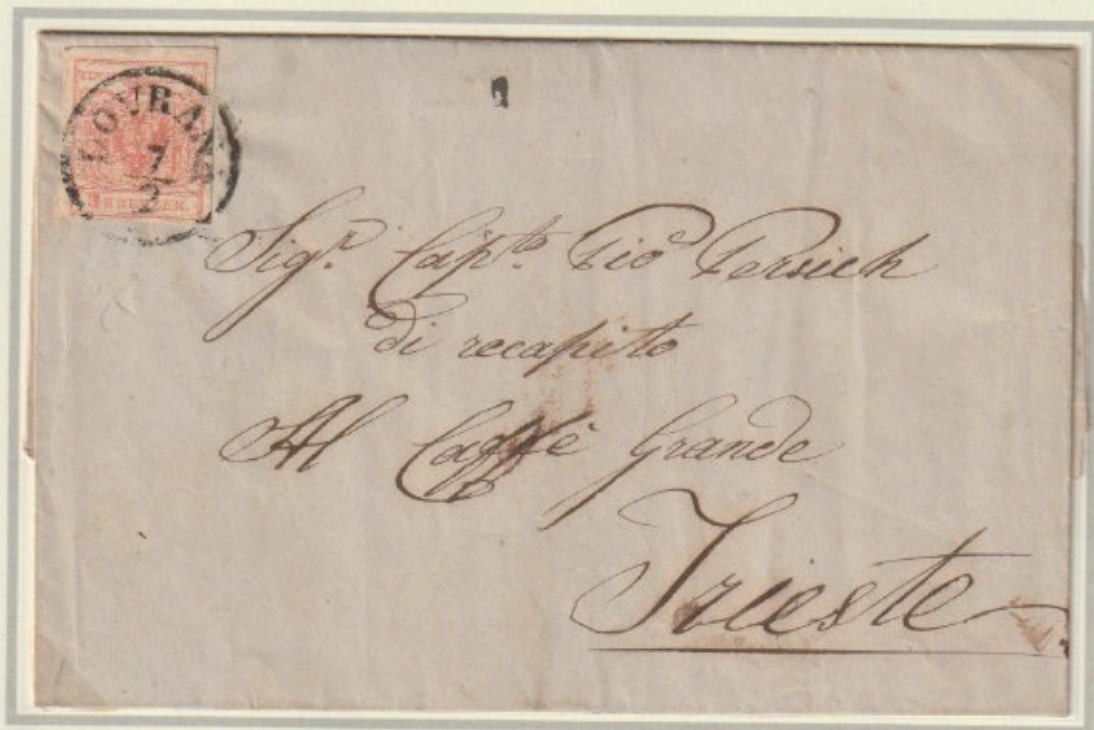 LOVRANA
7/2
3 KREUZER.
Sigr. Capto. Pio Persich
di recapito
Al Caffè Grande
Trieste